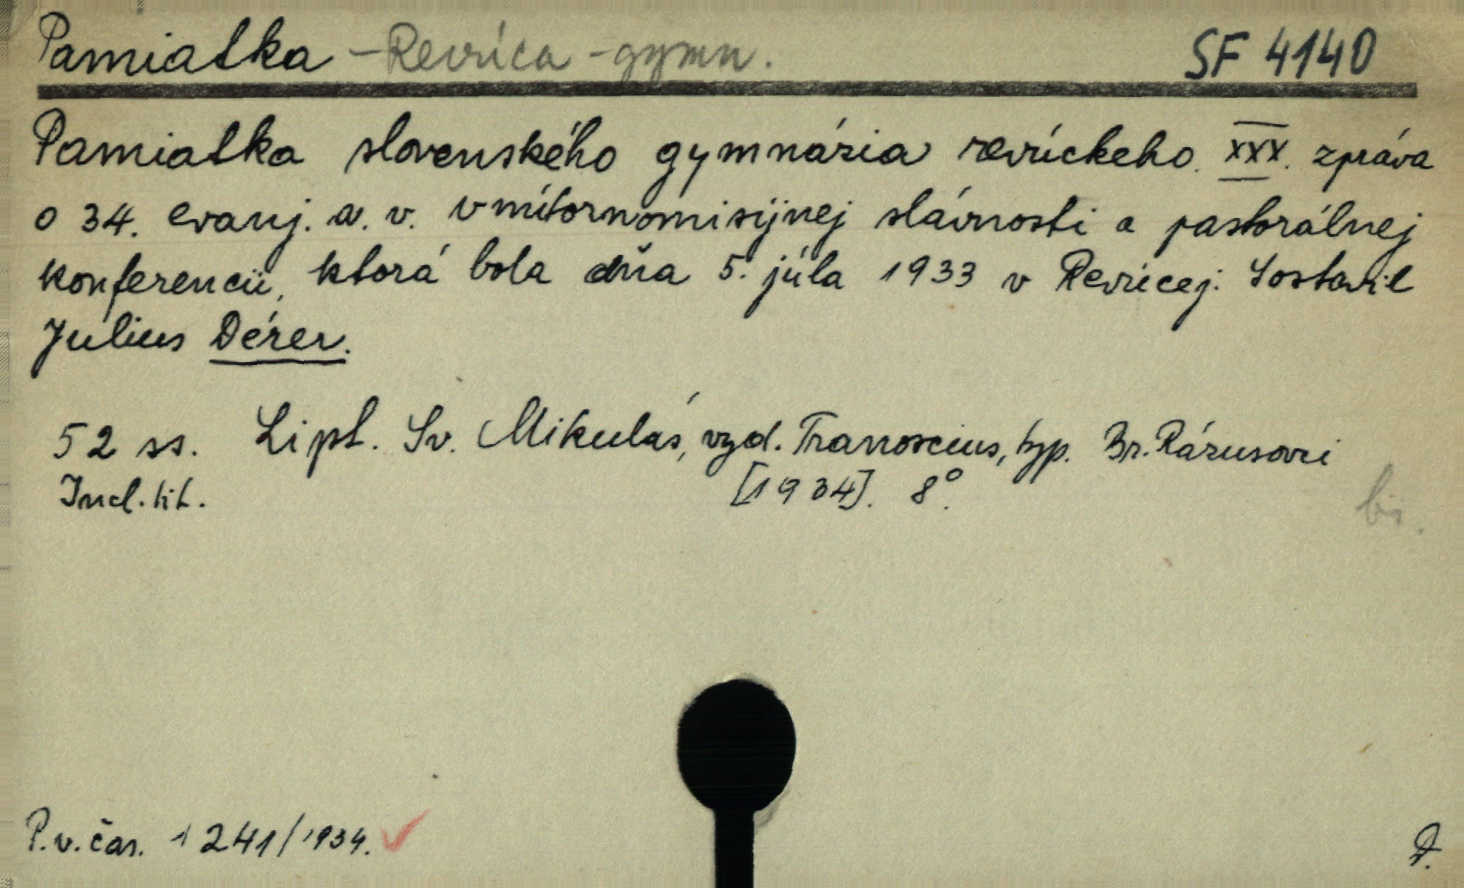 Pamiatka - Revúca - gymn. SF 4140
Pamiatka slovenského gymnázia revúckeho. XXX. zpráva
o 34. evanj. a. v. vnútornomisijnej slávnosti a pastorálnej
konferencii, ktorá bola dňa 5. júla 1933 v Revúcej. Sostavil
Július Dérer.
52 ss. Lipt. Sv. Mikuláš, vyd. Tranoscius, typ. Br. Rázusovci
Incl. tit. [1934]. 8°.
P. v. čas. 1241/1934.